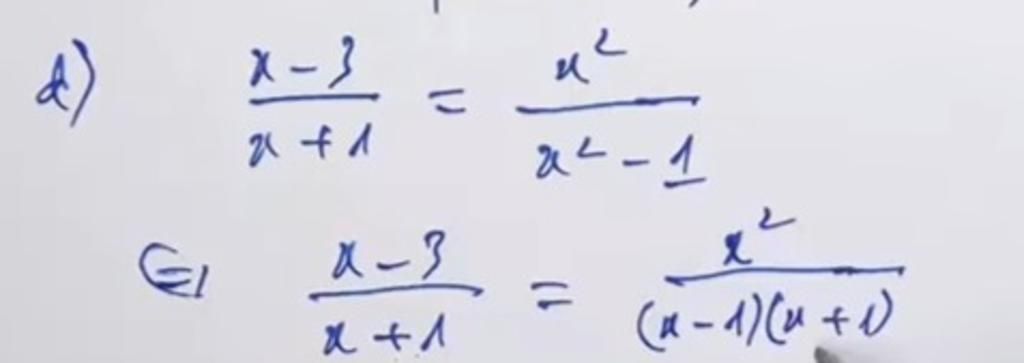 d) \frac{x-3}{x+1} = \frac{x^2}{x^2-1}
⇔ \frac{x-3}{x+1} = \frac{x^2}{(x-1)(x+1)}